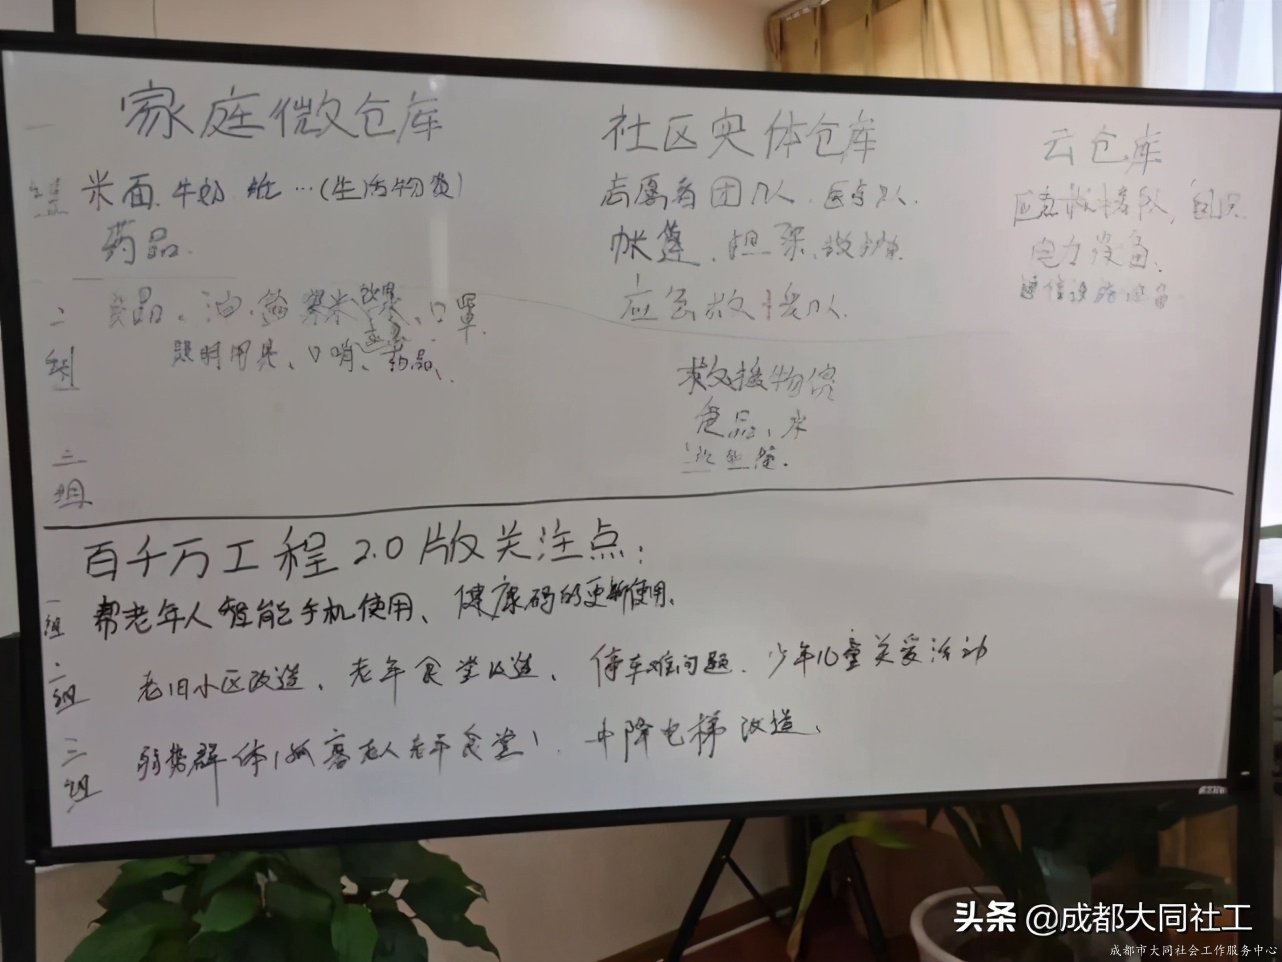 家庭微仓库 社区实体仓库 云仓库
一组 米面、牛奶 纸…(生活物资) 志愿者团队、医疗队、 应急救援队,
药品、 帐篷、担架、 电力设备、
应急救援队、 通信设备
二组 油、 口罩
照明用具、口哨、药品、
应急
救援物资
食品、水
三组
百千万工程2.0版关注点:
一组 帮老年人智能手机使用、健康码的更新使用、
二组 老旧小区改造、老年食堂改造、停车难问题、少年儿童关爱活动
三组 弱势群体(孤寡老人老年食堂)、 电梯改造、
头条 @成都大同社工
成都市大同社会工作服务中心